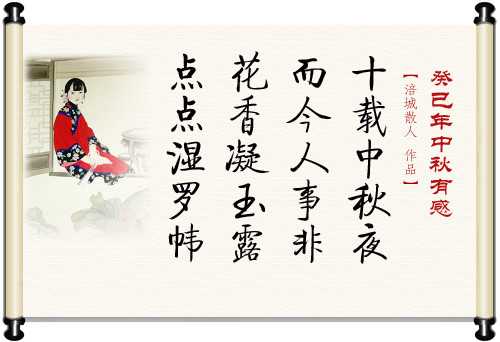 癸巳年中秋有感
【涪城散人 作品】
十载中秋夜
而今人事非
花香凝玉露
点点湿罗帏